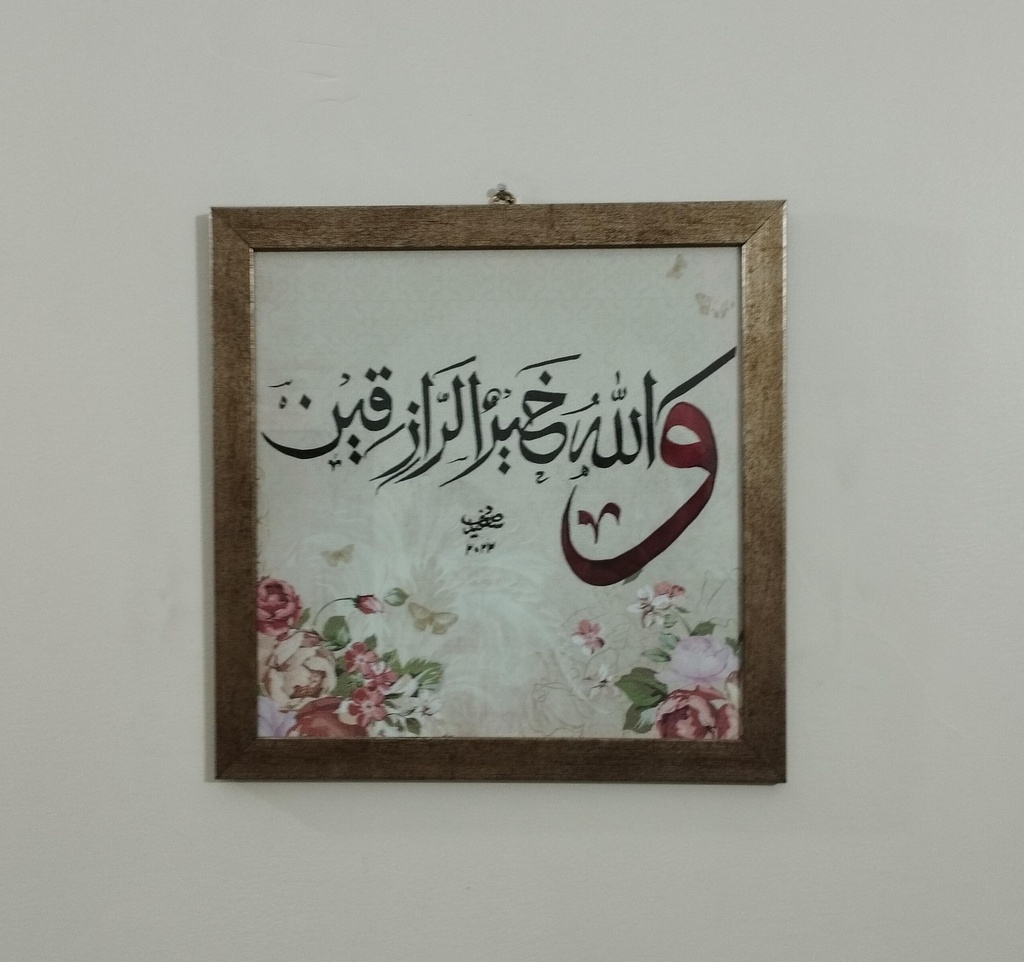 والله خير الرازقين
سعيد
٢٠٢٣